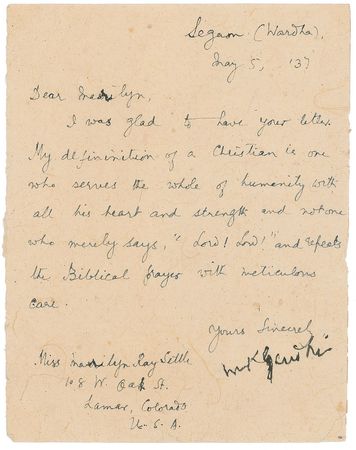 Segaon (Wardha),
May 5, '37
Dear Marilyn,
I was glad to have your letter.
My definition of a Christian is one
who serves the whole of humanity with
all his heart and strength and not one
who merely says, "Lord! Lord!" and repeats
the Biblical prayer with meticulous
care.
Yours Sincerely
MKGandhi
Miss Marilyn Ray Settle
108 W. Oak St.
Lamar, Colorado
U. S. A.